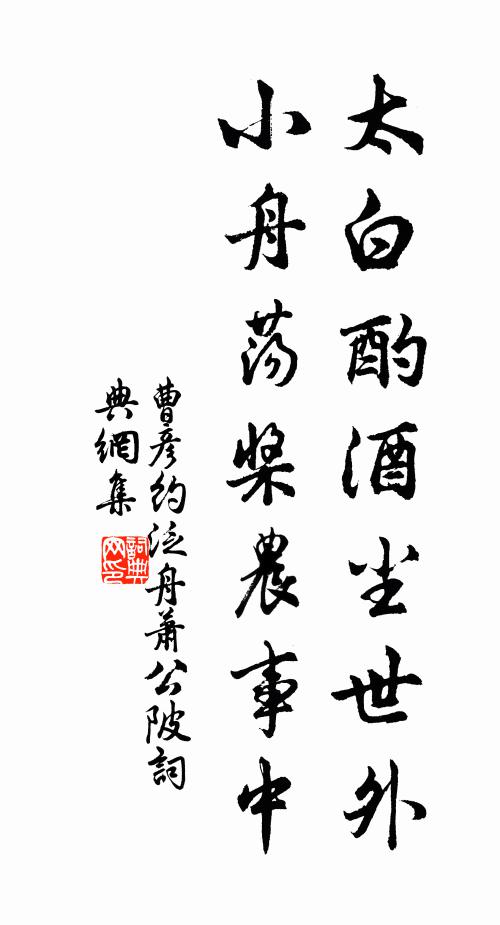 太白酌酒尘世外
小舟荡桨農事中
曹彦約泛舟蕭公陂詞
典網集
詞典
网印